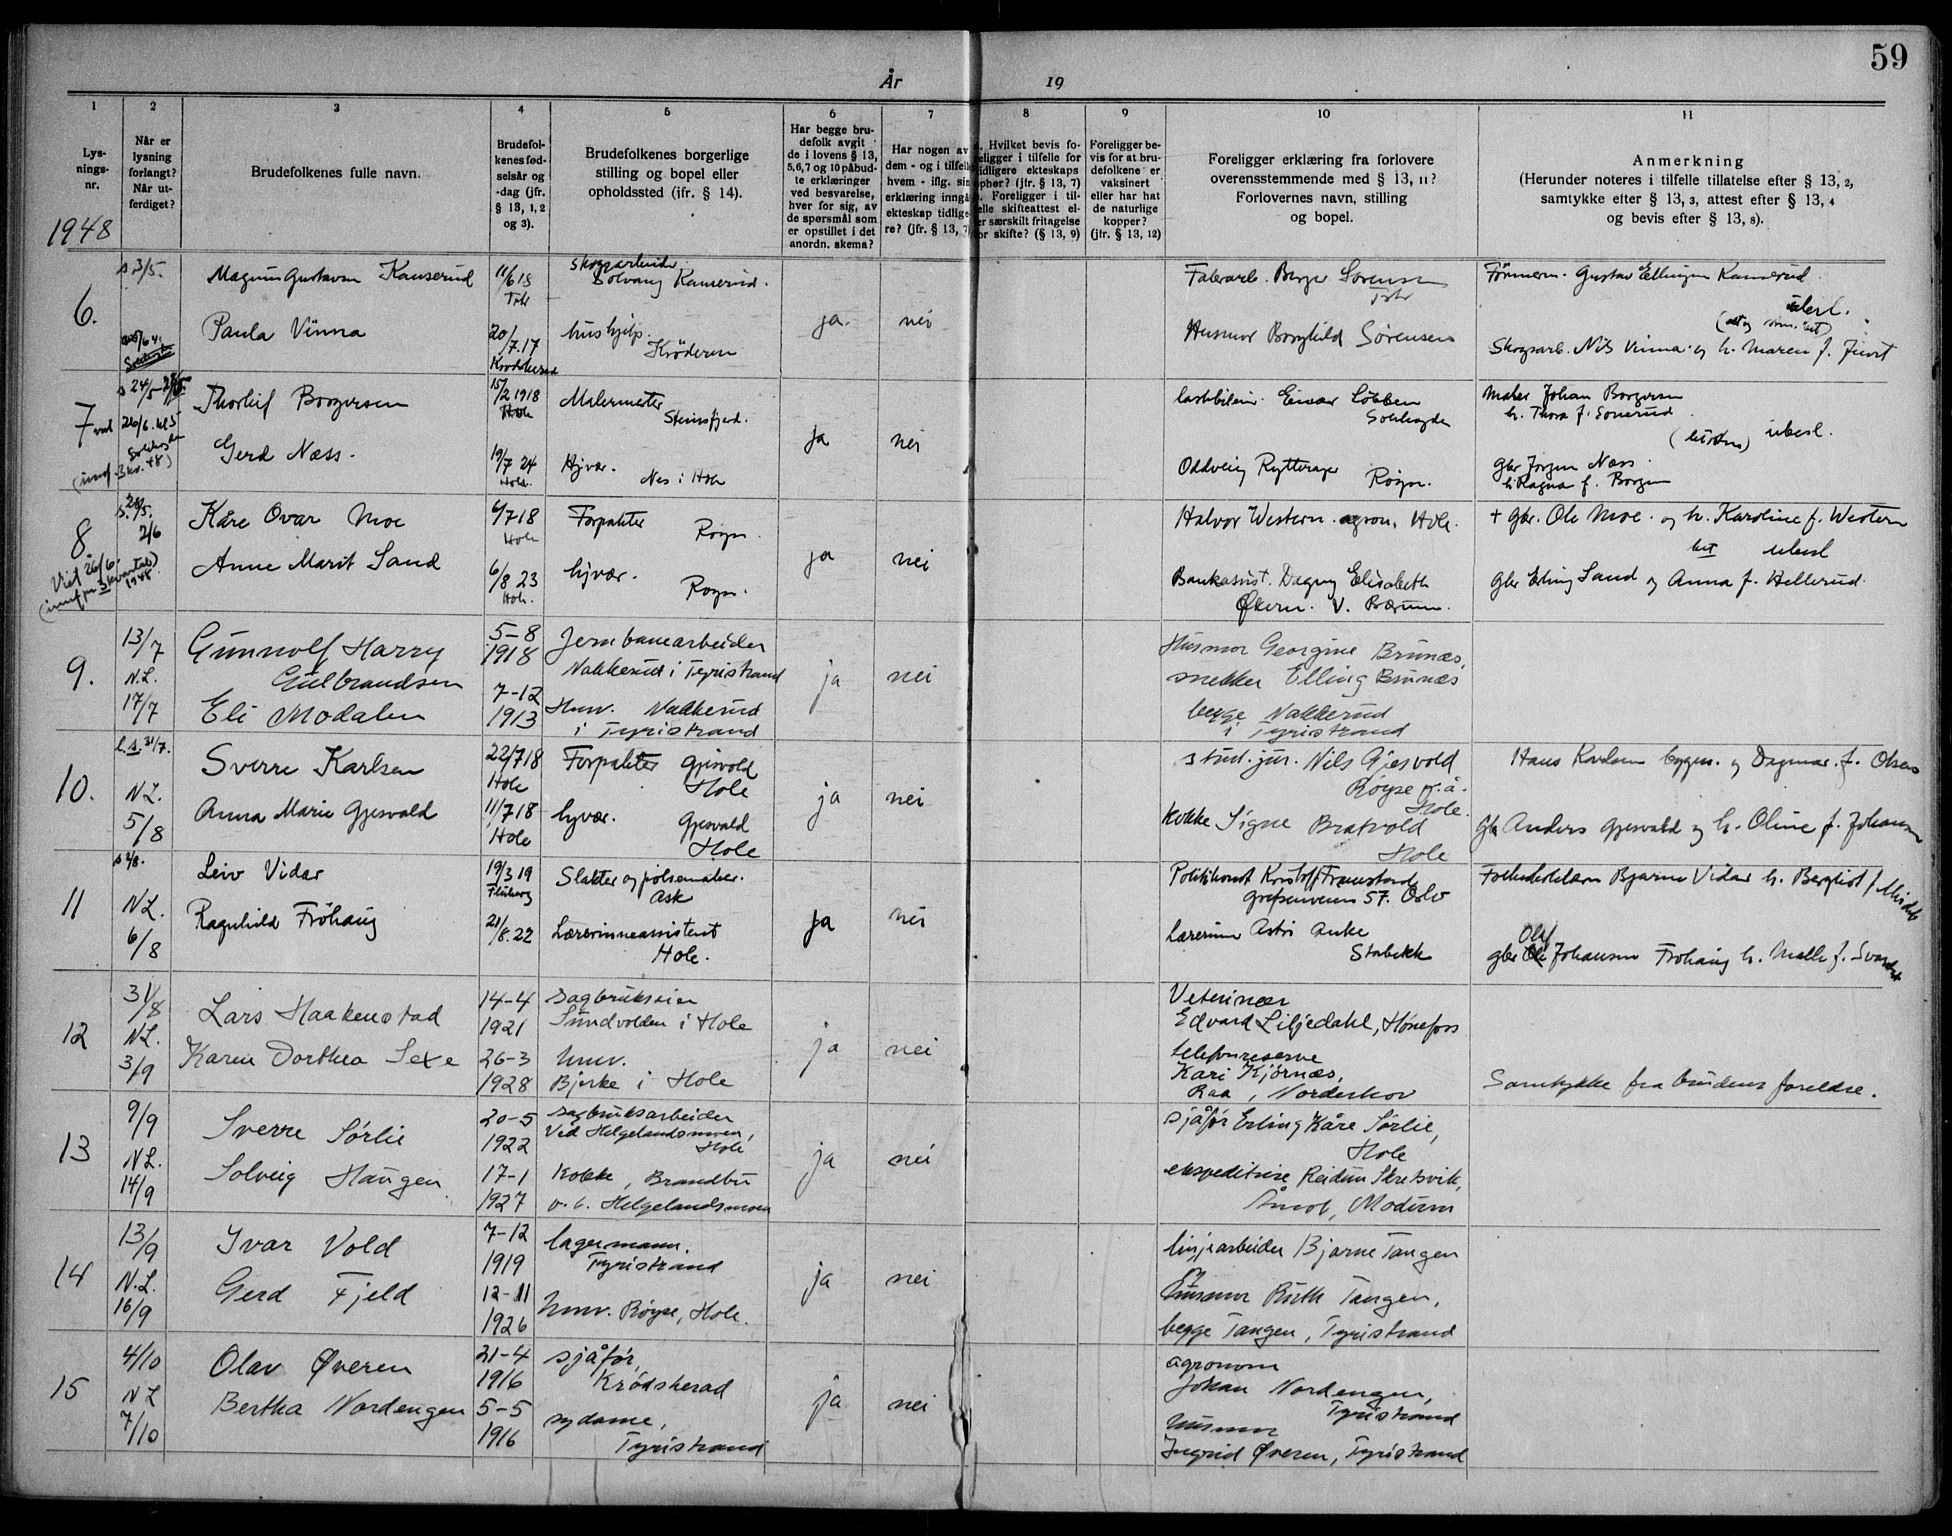 59
År 19
1 2 3 4 5 6 7 8 9 10 11
Lys-
nings-
nr.
Når er
lysning
forlangt?
Når ut-
ferdiget?
Brudefolkenes fulle navn.
Brudefol-
kenes fød-
selsår og
-dag (jfr.
§ 13, 1, 2
og 3).
Brudefolkenes borgerlige
stilling og bopel eller
opholdssted (ifr. § 14).
Har begge bru-
defolk avgit
de i lovens § 13,
5,6,7 og 10 påbud-
te erklæringer
ved besvarelse,
hver for sig, av
de spørsmål som
er opstillet i det
anordn. skema?
Har nogen av
dem - og i tilfelle
hvem - iflg. sin
erklæring inngå
ekteskap tidlige-
re? (jfr. § 13, 7)
Hvilket bevis fo-
eligger i tilfelle for
tidligere ekteskaps
ophør? (jfr. § 13, 7)
Foreligger i til-
elle skifteattest el-
er særskilt fritagelse
or skifte? (§ 13, 9)
Foreligger be-
vis for at bru-
defolkene er
vaksinert
eller har hat
de naturlige
kopper?
(jfr. § 13, 12)
Foreligger erklæring fra forlovere
overensstemmende med § 13, 11?
Forlovernes navn, stilling
og bopel.
Anmerkning
(Herunder noteres i tilfelle tillatelse efter § 13, 2,
samtykke efter § 13, 3, attest efter § 13, 4
og bevis efter § 13, 8).
1948
6.
s 3/5.
Magnus Gustavsen Kanserud
11/6 18
skogsarbeider
Solvang Kanserud.
Paula Vinna
20/7.17
Krødsherad
hushjelp.
Krøderen
ja. nei
Fabrarb. Birger Sørensen
Husmor Borghild Sørensen
Gustav Ellingsen Kanserud
ubesl.
Skogsarb. Nils Vinna og h. Maren f.
7
s 24/5
26/6. kl 5
Sollihøgda
Thorleif Borgersen
15/2 1918
Malermester
Steinsfjord.
Gerd Næss.
19/7 24
Hole.
Hjvær.
Nes i Hole
ja nei
lastebileier. Einar Løbben
Sollihøgda
Oddveig Rytterager
Røyse.
Maler Johan Borgersen
h. Thora f. Sonerud
ubesl.
gbr Jørgen Næss
h. Ragna f. Borgen
8
s. 28/5.
2/6
Viet 26/6.
1948
Kåre Ovar Moe
6/7 18
Hole
Forpakter
Røyse
Anne Marit Sand
6/8 23
Hole.
hjvær.
Røyse.
ja nei
Halvor Western. agron. Hole.
Bankassist. Dagny Elisabeth
Økern. V. Bærum.
+ gbr. Ole Moe. og h. Karoline f. Western
ubesl
gbr Erling Sand og Anna f. Hellerud.
9.
13/7
N.L.
17/7
Gunnolf Harry
Gulbrandsen
5-8
1918
Jernbanearbeider
Nakkerud i Tyristrand
Eli Modalen
7-12
1913
Husv. Nakkerud
i Tyristrand
ja nei
Husmor Georgine Brunæs,
snekker Elling Brunæs
begge Nakkerud
i Tyristrand
10.
l.s. 31/7.
N L.
5/8
Sverre Karlsen
22/7 18
Hole
Forpakter Gjesvold
Hole
Anna Marie Gjesvold
11/7 18
Hole
hjvær. Gjesvold
Hole
ja nei
stud. jur. Nils Gjesvold
Røyse p.å.
Hole.
Kokke Signe Bratvold
Hole
Hans Karlsen bygm. og Dagmar f. Olsen
gbr Anders Gjesvold og h. Oline f. Johansen
11
s 2/8.
N L.
6/8
Leiv Vidar
19/3 19
Flåberg
Slakter og pølsemaker.
Ask
Ragnhild Frøhaug
21/8.22
Lærerinneassistent
Hole.
ja nei
Politikonst Kristoff Framstad
Grefsenveien 57. Oslo
Lærerinne Astri Anke
Stabekk
Bjarne Vidar h. Bergliot f.
gbr Olaf Johansen Frøhaug h. Malla f.
12
31/8
N.L.
3/9
Lars Haakenstad
14-4
1921
Sagbrukseier
Sundvolden i Hole
Karen Dorthea Sexe
26-3
1928
husv.
Bjerke i Hole
ja nei
Veterinær
Edvard Liljedahl, Hønefoss
telefonreserve
Kari Kjørnæs,
Raa, Norderhov
Samtykke fra brudens foreldre.
13
9/9
N L.
14/9
Sverre Sørlie
20-5
1922
sagbruksarbeider
Ved Helgelandsmoen,
Hole
Solveig Haugen
17-1
1927
Kokke, Brandbu
v. b. Helgelandsmoen
ja nei
sjåfør Erling Kåre Sørlie,
Hole
ekspeditrise Reidun Skretsvik,
Åmot, Modum
14
13/9
N.L.
16/9
Ivar Vold
7-12
1919
lagermann.
Tyristrand
Gerd Fjeld
12-11
1926
husv. Røyse, Hole.
ja nei
linjearbeider Bjarne Tangen
og
husmor Ruth Tangen,
begge Tangen, Tyristrand
15
4/10
N L
7/10
Olav Øveren
21-4
1916
sjåfør,
Krødsherad
Bertha Nordengen
5-5
1916
sydame,
Tyristrand
ja nei
agronom
Johan Nordengen,
Tyristrand
husmor
Ingrid Øveren, Tyristrand